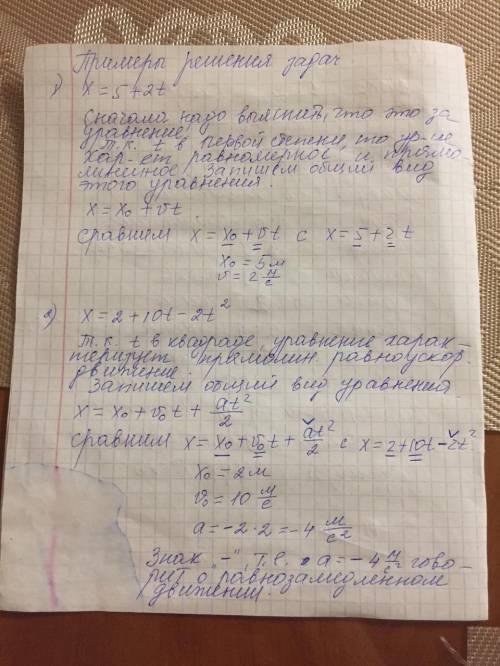 Примеры решения задач
1) x = 5 + 2t
Сначала надо выяснить, что это за
уравнение.
Т.к. t в первой степени, то ур-ие
хар-ет равномерное и прямо-
линейное. Запишем общий вид
этого уравнения.
x = x₀ + υt.
сравним x = x₀ + υt с x = 5 + 2t
x₀ = 5 м
υ = 2 м/с
2) x = 2 + 10t - 2t²
Т.к. t в квадрате, уравнение харак-
теризует прямолин. равноускор.
движение.
Запишем общий вид уравнения
x = x₀ + υ₀t + at²/2
сравним x = x₀ + υ₀t + at²/2 с x = 2 + 10t - 2t²
x₀ = 2 м
υ₀ = 10 м/с
a = -2·2 = -4 м/с²
Знак „-", т.е. a = -4 м/с² гово-
рит о равнозамедленном
движении.